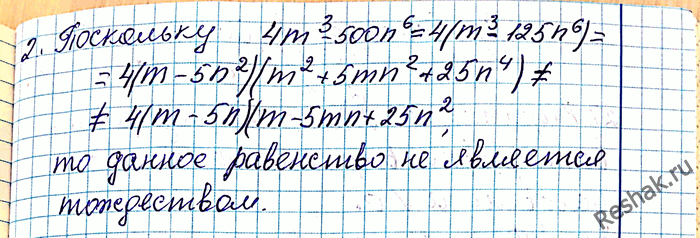 2. Поскольку 4m³-500n⁶=4(m³-125n⁶)=
=4(m-5n²)(m²+5mn²+25n⁴)≠
≠ 4(m-5n)(m-5mn+25n²,
то данное равенство не является
тождеством.
Reshak.ru